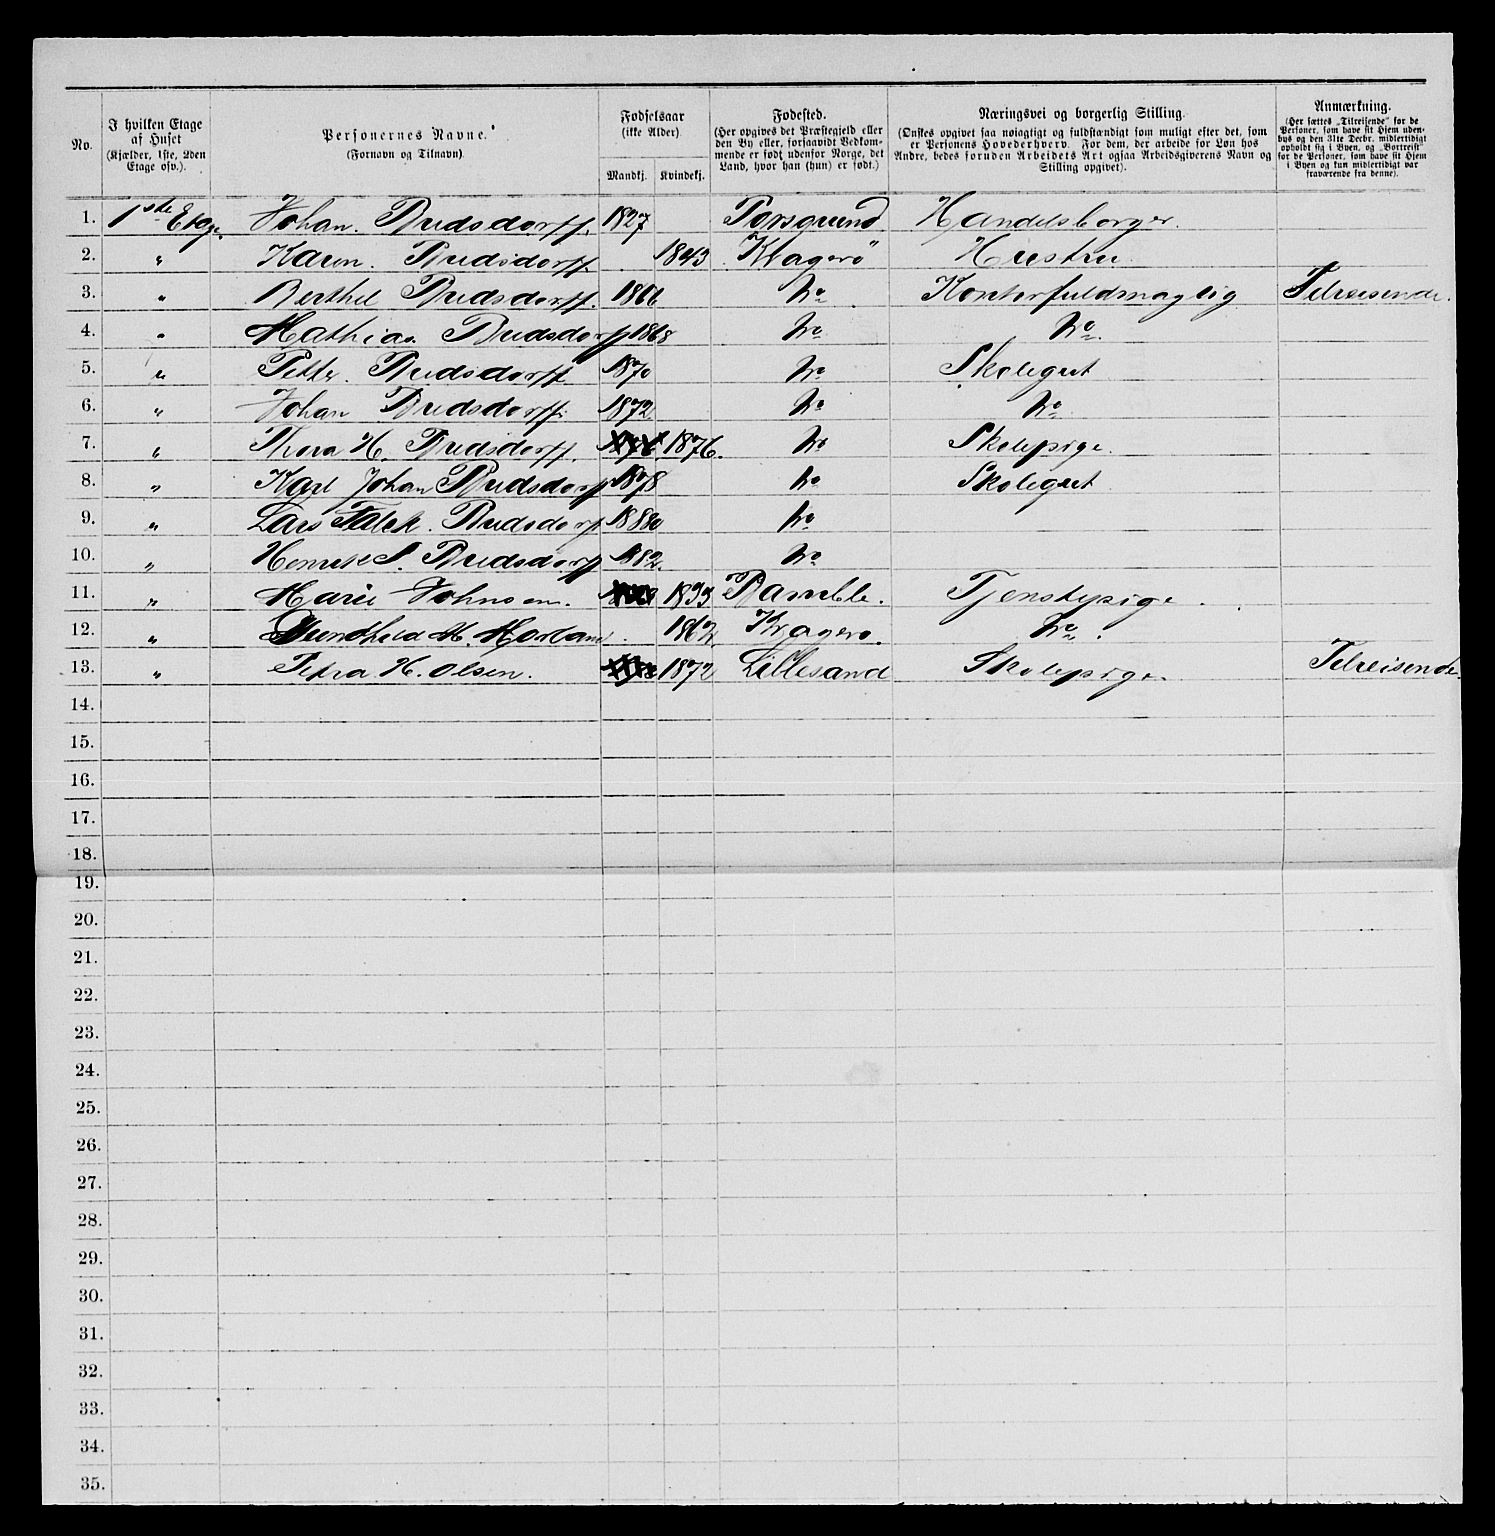 No.
I hvilken Etage af Huset (Kjælder, 1ste, 2den Etage osv.).
Personernes Navne. (Fornavn og Tilnavn)
Fødselsaar (ikke Alder)
Mandkj. Kvindekj.
Fødested. (Her opgives det Præstegjeld eller den By eller, forsaavidt Vedkommende er født udenfor Norge, det Land, hvor han (hun) er født.)
Næringsvei og borgerlig Stilling. (Ønskes opgivet saa nøiagtigt og fuldstændigt som muligt efter det, som er Personens Hovederhverv. For dem, der arbeide for Løn hos Andre, bedes foruden Arbeidets Art ogsaa Arbeidsgiverens Navn og Stilling opgivet).
Anmærkning. (Her sættes „Tilreisende“ for de Personer, som have sit Hjem udenbys og den 31te Decbr. midlertidigt opholdt sig i Byen, og „Bortreist“ for de Personer, som have sit Hjem i Byen og kun midlertidigt var fraværende fra denne).
1. 1ste Etage Johan. Bredsdorff. 1827 Porsgrund Handelsborger.
2. " Karen. Bredsdorff 1843 Kragerø Hustru
3. " Berthel Bredsdorff. 1866 do Kontorfuldmægtig Tilreisende.
4. " Mathias. Bredsdorff 1868 do do
5. " Petter. Bredsdorff 1870 do Skolegut
6. " Johan Bredsdorff. 1872 do do
7. " Thora H. Bredsdorff. 1876. do Skolepige.
8. " Karl Johan Bredsdorff 1878 do Skolegut
9. " Lars Falck. Bredsdorf 1880 do
10. " S. Bredsdorff 1882. do
11. " Marie Johnsen. 1833 Bamble. Tjenestepige.
12. " M. 1862 Kragerø. do
13. " Petra H. Olsen. 1872 Lillesand Skolepige. Tilreisende.
14.
15.
16.
17.
18.
19.
20.
21.
22.
23.
24.
25.
26.
27.
28.
29.
30.
31.
32.
33.
34.
35.